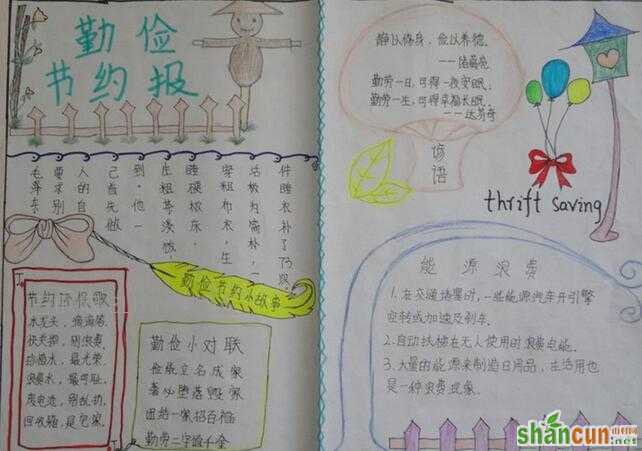 勤俭
节约报
毛泽东
要求别
人的自
己首先做
到,他一
生粗茶淡饭,
睡硬板床,
穿粗布衣,生
件睡衣补了73次
勤俭节约小故事
节约环保歌
水龙头,滴滴答,
快关掉,别浪费,
珍惜水,最光荣,
浪费水,最可耻,
废电池,别乱扔,
回收箱,是它家。
勤俭小对联
俭版立名成家
奢必堕落毁家
团结一家招百福
勤劳二字值千金
静以修身,俭以养德。
——诸葛亮
勤劳一日,可得一夜安眠;
勤劳一生,可得幸福长眠
——达芬奇
谚语
thrift saving
能源浪费
1.在交通堵塞时,一些能源汽车开引擎
空转或加速及刹车.
2.自动扶梯在无人使用时浪费电能.
3.大量的能源来制造日用品,在活用也
是一种浪费现象.
shancun
山村网
.net